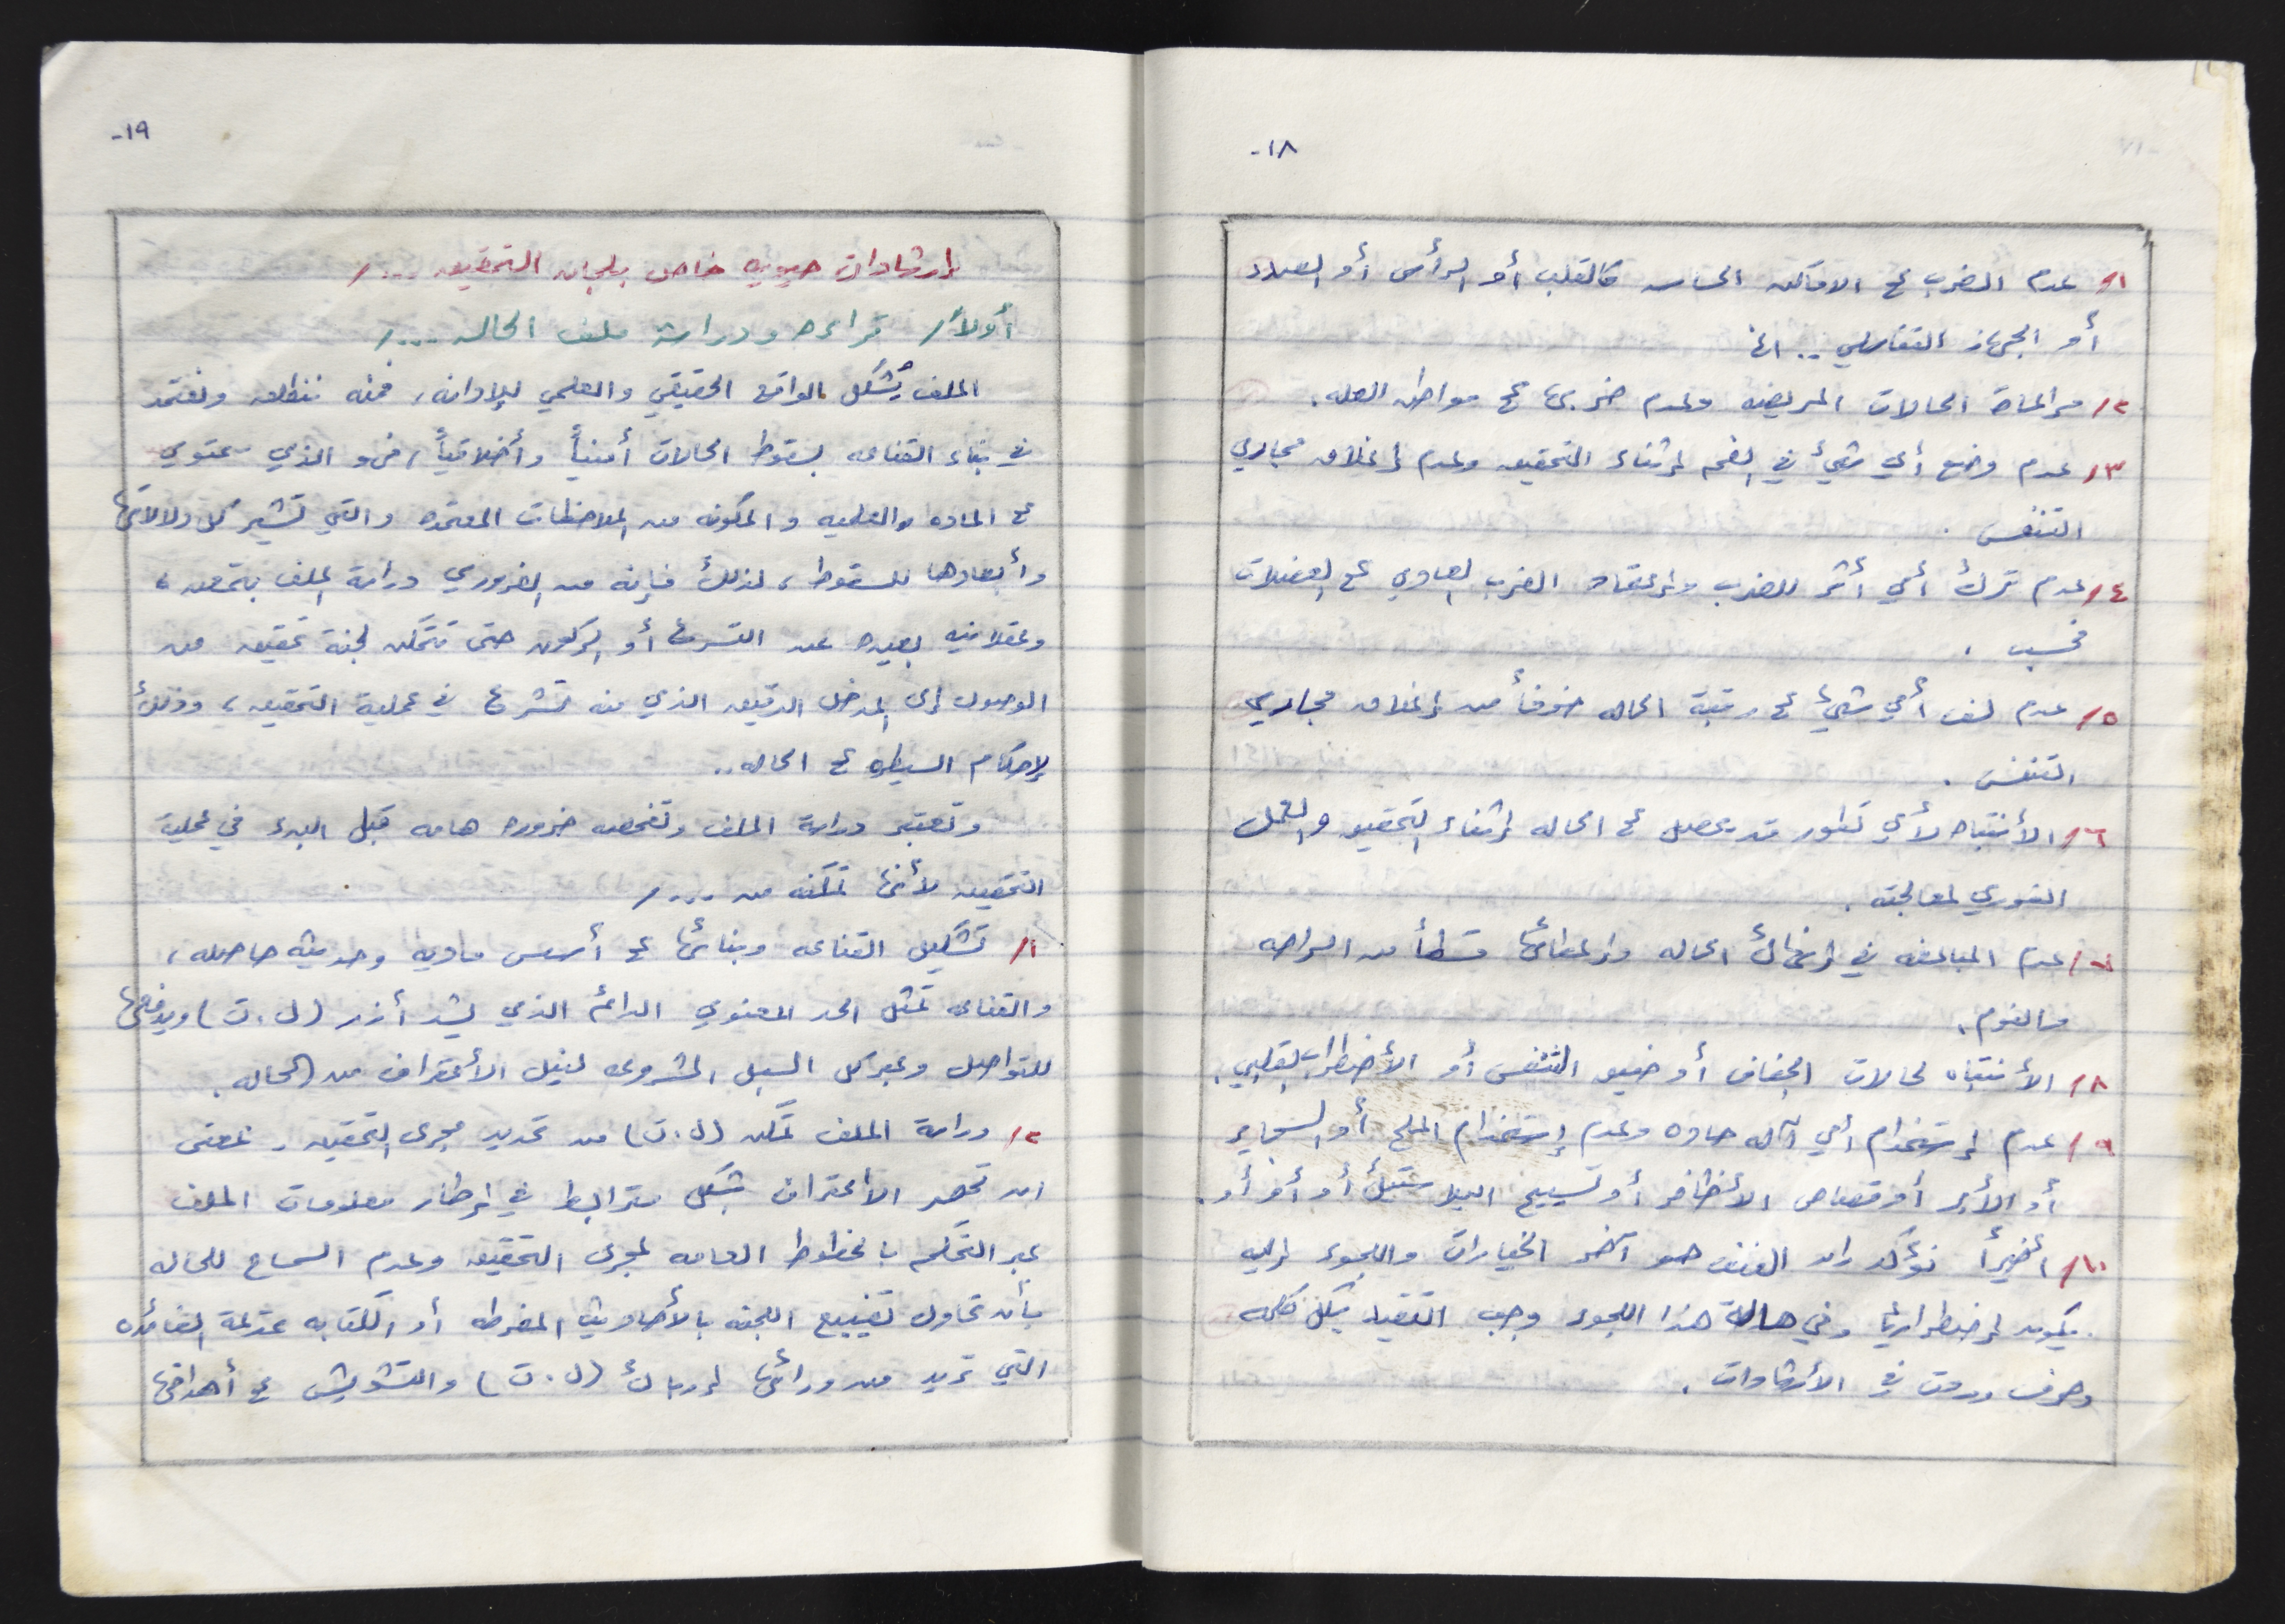 ١٨-
١/ عدم الضرب على الاماكن الحساسه كالقلب أو الرأس أو الصدر
أو الجهاز التناسلي .. الخ
٢/ مراعاة الحالات المريضه وعدم ضربها على مواطن العله .
٣/ عدم وضع أي شيئ في الفم إثناء التحقيق وعدم إغلاق مجاري
التنفس .
٤/ عدم ترك أي أثر للضرب وإعتماد الضرب العادي على العضلات
فحسب .
٥/ عدم لف أي شيئ على رقبة الحاله خوفاً من إغلاق مجاري
التنفس .
٦/ الأنتباه لأي تطور قد يحصل على الحاله إثناء التحقيق والعمل
الفوري لمعالجته .
٧/ عدم المبالغه في إنهاك الحاله وإعطائها قسطاً من الراحه
والنوم .
٨/ الأنتباه لحالات الجفاف أو ضيق التنفس أو الأضطراب القلبي .
٩/ عدم إستخدام أي آله حاده وعدم إستخدام الملح أو السجاير
أو الأبر أو قصاص الأظافر أو تسييح البلاستيك أو أو أو .
١٠/ أخيراً نؤكد ان العنف هو آخر الخيارات واللجوء إليه
يكون إضطرارياً وفي حالة هذا اللجوء وجب التقيد بكل كلمه
وحرف وردت في الأرشادات .
١٩-
إرشادات حيويه خاص بلجان التحقيق .../
أولاً/ قراءه ودراسة ملف الحاله .../
الملف يُشكل الواقع الحقيقي والعلمي للإدانه ، فمنه ننطلق ونعتمد
في بناء القناعه بسقوط الحالات أمنياً وأخلاقياً ، فهو الذي يحتوي
على الماده والعلميه والمكونه من الملاحظات المعتمده والتي تشير كل دلالاتها
وأبعادها للسقوط ، لذلك فإنه من الضروري دراسة الملف بتمعن ،
وعقلانيه بعيده عن التسرع أو الركون حتى تتمكن لجنة تحقيق من
الوصول إلى المدخل الدقيق الذي منه تشرع في عملية التحقيق ، وذلك
لإحكام السيطره على الحاله ..
وتعتبر دراسة الملف وتفحصه ضروره هامه قبل البدء في عملية
التحقيق لأنها تمكنه من .../
١/ تشكيل القناعه وبنائها على أسس ماديه وحديثه حاصله ،
والقناعه تمثل الحد المعنوي الدائم الذي يشد أزر (ل.ت) ويدفعها
للتواصل وعبر كل السبل المشروعه لنيل الأعتراف من الحاله .
٢/ دراسة الملف تمكن (ل.ت) من تحديد مجرى التحقيق ، بمعنى
ان تحصر الاعتراف بشكل مترابط في إطار معلومات الملف
عبر التحكم بالخطوط العامه لمجرى التحقيق وعدم السماح للحاله
بأن تحاول تضييع اللجنه بالأحاديث المفرطه أو الكتابه عديمة الفائده
التي تريد من ورائها إرباك (ل.ت) والتشويش على أهدافها